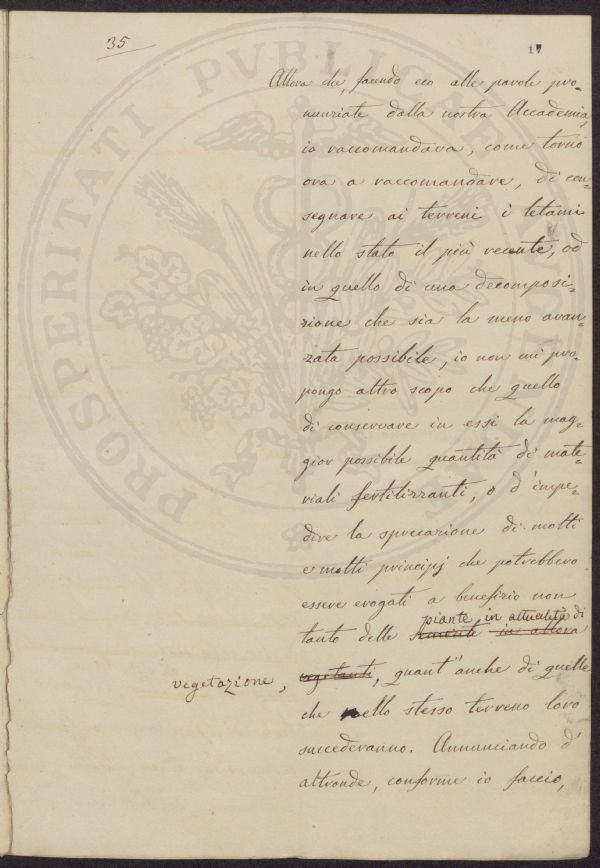 35
17
Allora che, facendo eco alle parole pro-
nunziate dalla nostra Accademia,
io raccomandava, come torno
ora a raccomandare, di con-
segnare ai terreni i letami
nello stato il più recente, od
in quello di una decomposi-
zione che sia la meno avan-
zata possibile, io non mi pro-
pongo altro scopo che quello
di conservare in essi la mag-
gior possibile quantità di mate-
riali fertilizzanti, o d'impe-
dire la sprecazione di molti
e molti principj che potrebbero
essere erogati a benefizio non
piante in attualità di
tanto delle in allora
vegetazione, vegetanti, quant'anche di quelle
che nello stesso terreno loro
succederanno. Annunciando d'
altronde, conforme io faccio,
PROSPERITATI PVBLICAE